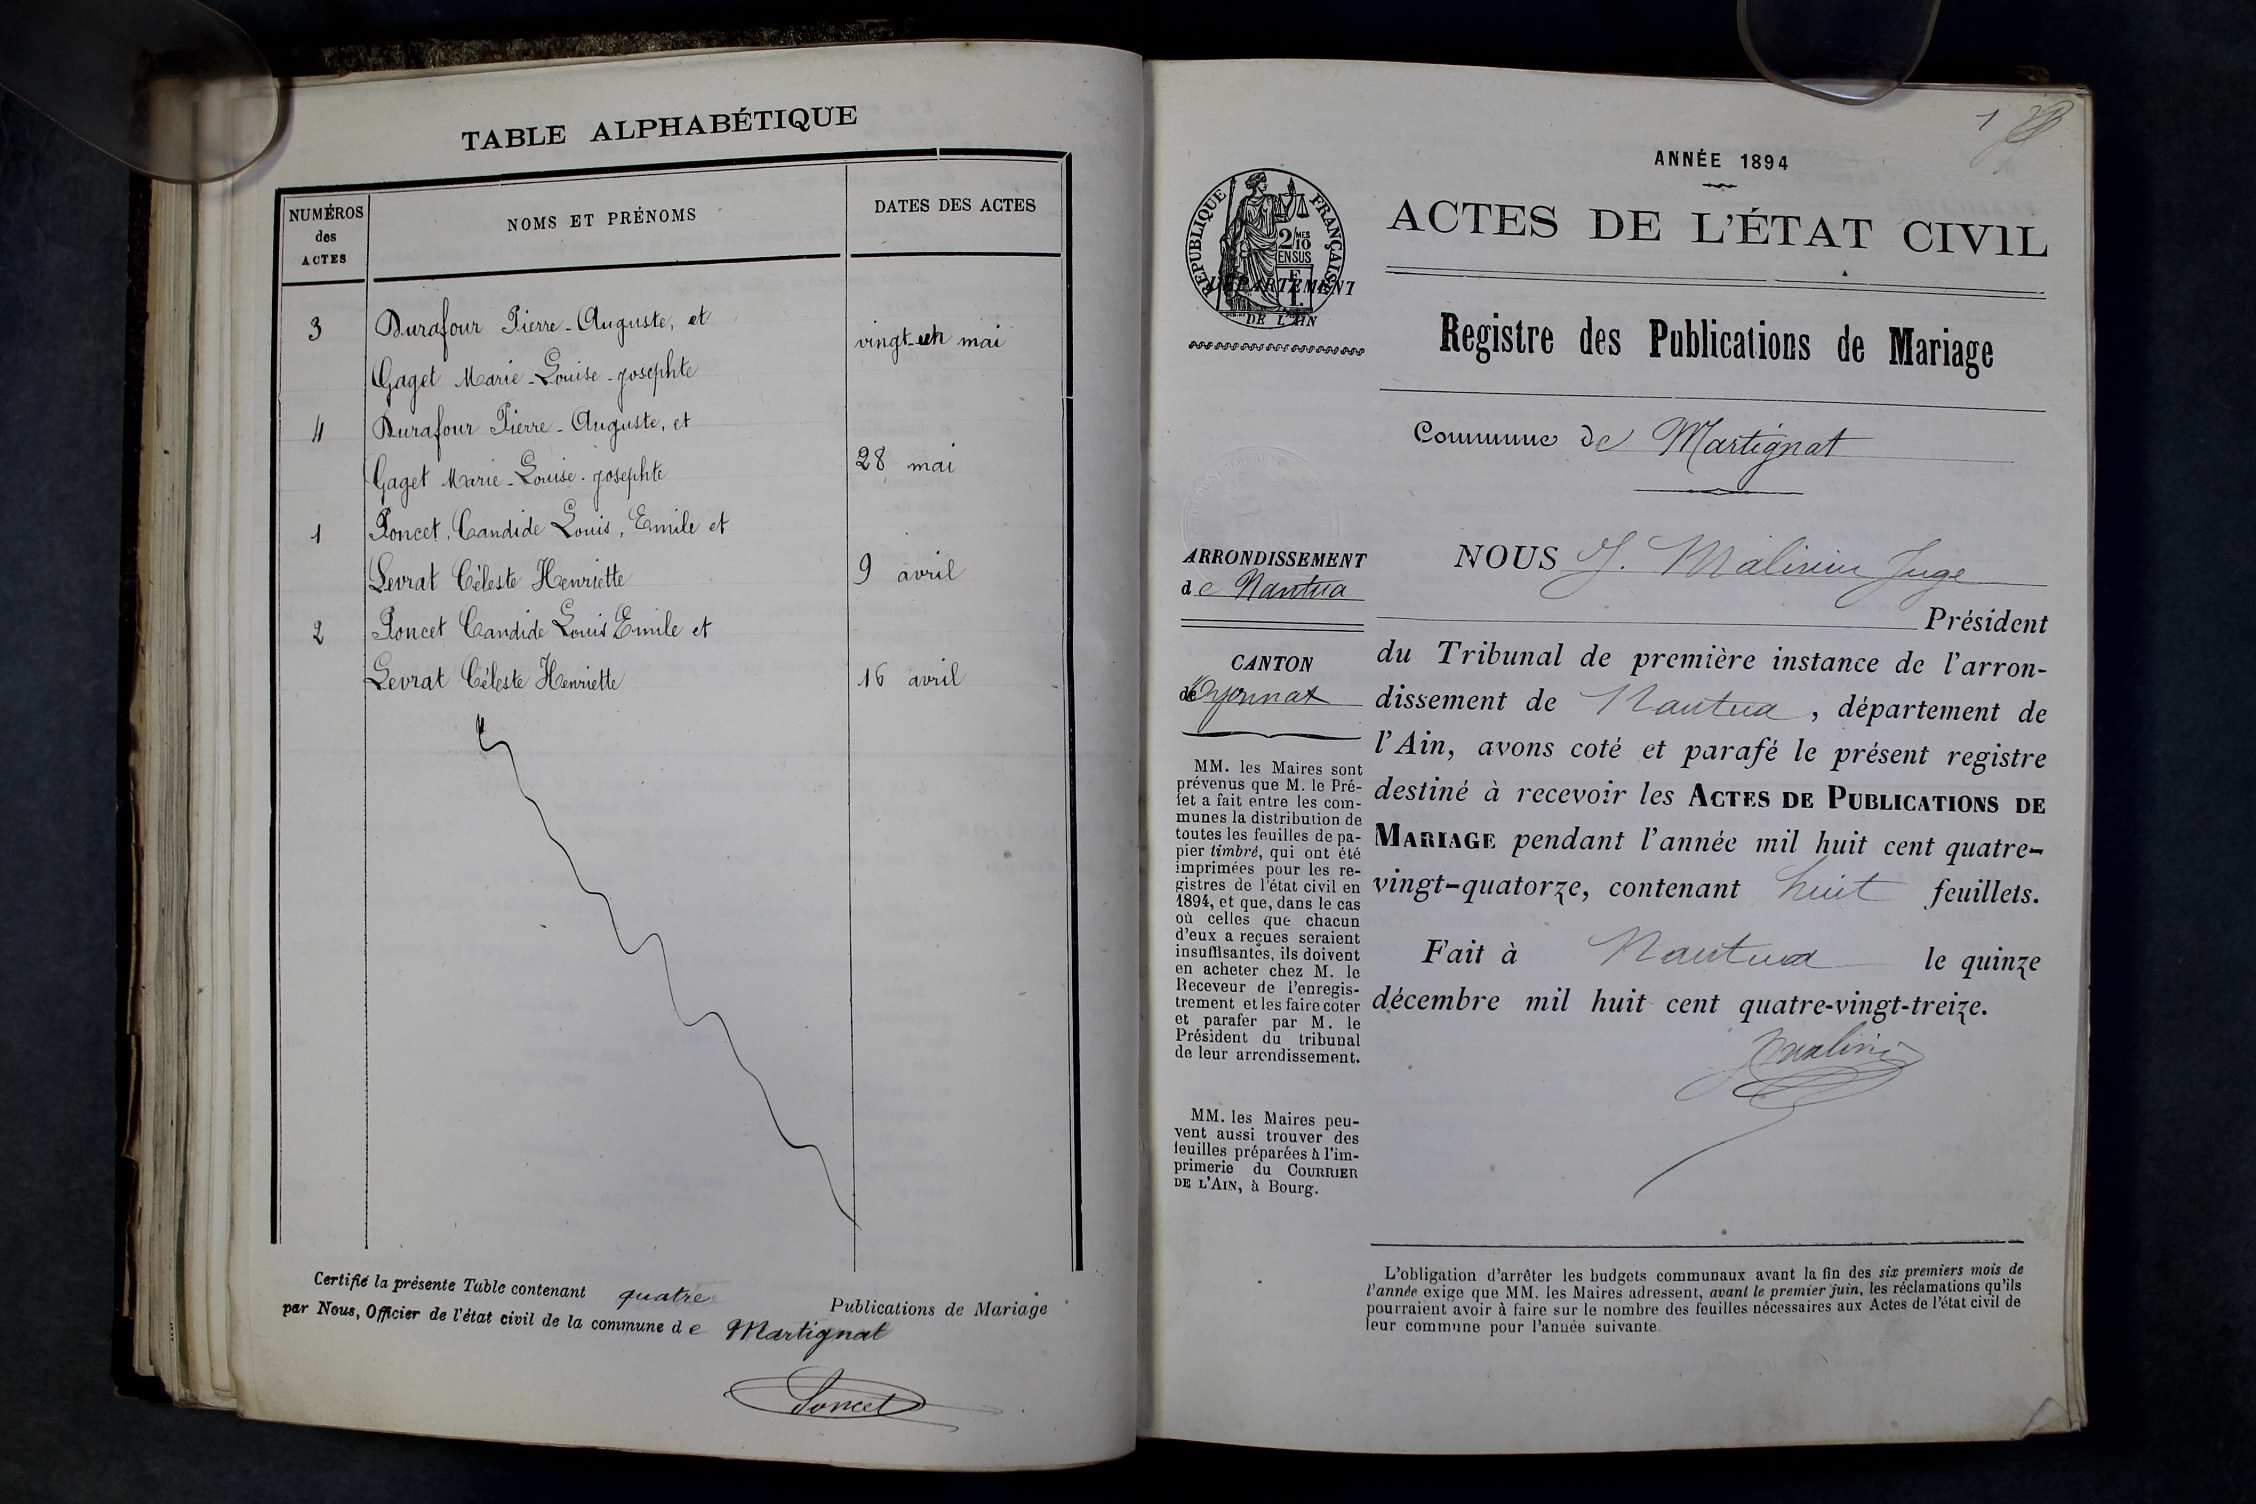 TABLE ALPHABÉTIQUE
NUMÉROS
des
ACTES
NOMS ET PRÉNOMS
DATES DES ACTES
3
Durafour Pierre-Auguste, et
vingt-un mai
Gaget Marie-Louise-Josephte
4
Durafour Pierre-Auguste, et
28 mai
Gaget Marie-Louise-Josephte
1
Poncet, Candide Louis, Emile et
9 avril
Levrat Céleste Henriette
2
Poncet Candide Louis Emile et
16 avril
Levrat Céleste Henriette
Certifié la présente Table contenant quatre Publications de Mariage
par Nous, Officier de l'état civil de la commune de Martignat
Poncet
1
ANNÉE 1894
ACTES DE L'ÉTAT CIVIL
RÉPUBLIQUE FRANÇAISE
2/10MES
EN SUS
DÉPARTEMENT
DE L'AIN
Registre des Publications de Mariage
Commune de Martignat
ARRONDISSEMENT
de Nantua
CANTON
de Oyonnax
MM. les Maires sont
prévenus que M. le Pré-
fet a fait entre les com-
munes la distribution de
toutes les feuilles de pa-
pier timbré, qui ont été
imprimées pour les re-
gistres de l'état civil en
1894, et que, dans le cas
où celles que chacun
d'eux a reçues seraient
insuffisantes, ils doivent
en acheter chez M. le
Receveur de l'enregis-
trement et les faire coter
et parafer par M. le
Président du tribunal
de leur arrondissement.
MM. les Maires peu-
vent aussi trouver des
feuilles préparées à l'im-
primerie du COURRIER
DE L'AIN, à Bourg.
NOUS J. Juge
Président
du Tribunal de première instance de l'arron-
dissement de Nantua, département de
l'Ain, avons coté et parafé le présent registre
destiné à recevoir les ACTES DE PUBLICATIONS DE
MARIAGE pendant l'année mil huit cent quatre-
vingt-quatorze, contenant huit feuillets.
Fait à Nantua le quinze
décembre mil huit cent quatre-vingt-treize.
L'obligation d'arrêter les budgets communaux avant la fin des six premiers mois de
l'année exige que MM. les Maires adressent, avant le premier juin, les réclamations qu'ils
pourraient avoir à faire sur le nombre des feuilles nécessaires aux Actes de l'état civil de
leur commune pour l'année suivante.